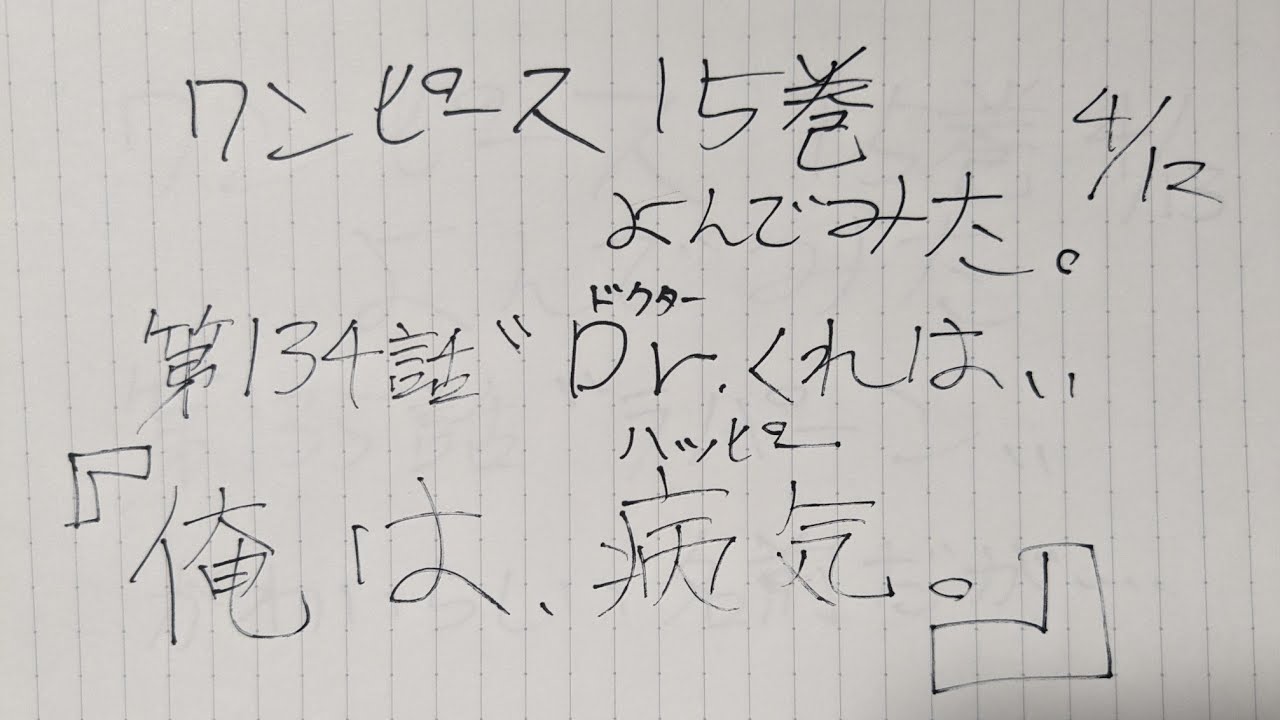 ワンピース 15巻
4/12
よんでみた。
ドクター
第134話〝Dr.くれは〟
ハッピー
『俺は、病気。』